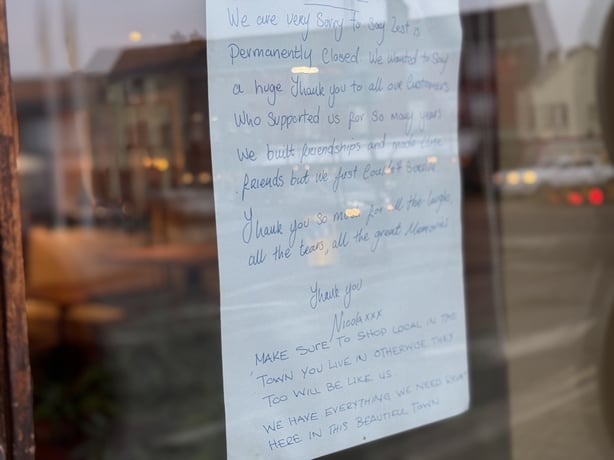 We are very Sorry to Say Zest is
Permanently Closed. We wanted to Say
a huge Thank you to all our Customers
Who Supported us for So many years
We built friendships and made
friends but we just Couldn't Survive
Thank you so much for all the laughs,
all the tears, all the great Memories
Thank you
Nicola xxx
MAKE SURE TO SHOP LOCAL IN THE
TOWN YOU LIVE IN OTHERWISE THEY
TOO WILL BE LIKE US
WE HAVE EVERYTHING WE NEED RIGHT
HERE IN THIS BEAUTIFUL TOWN